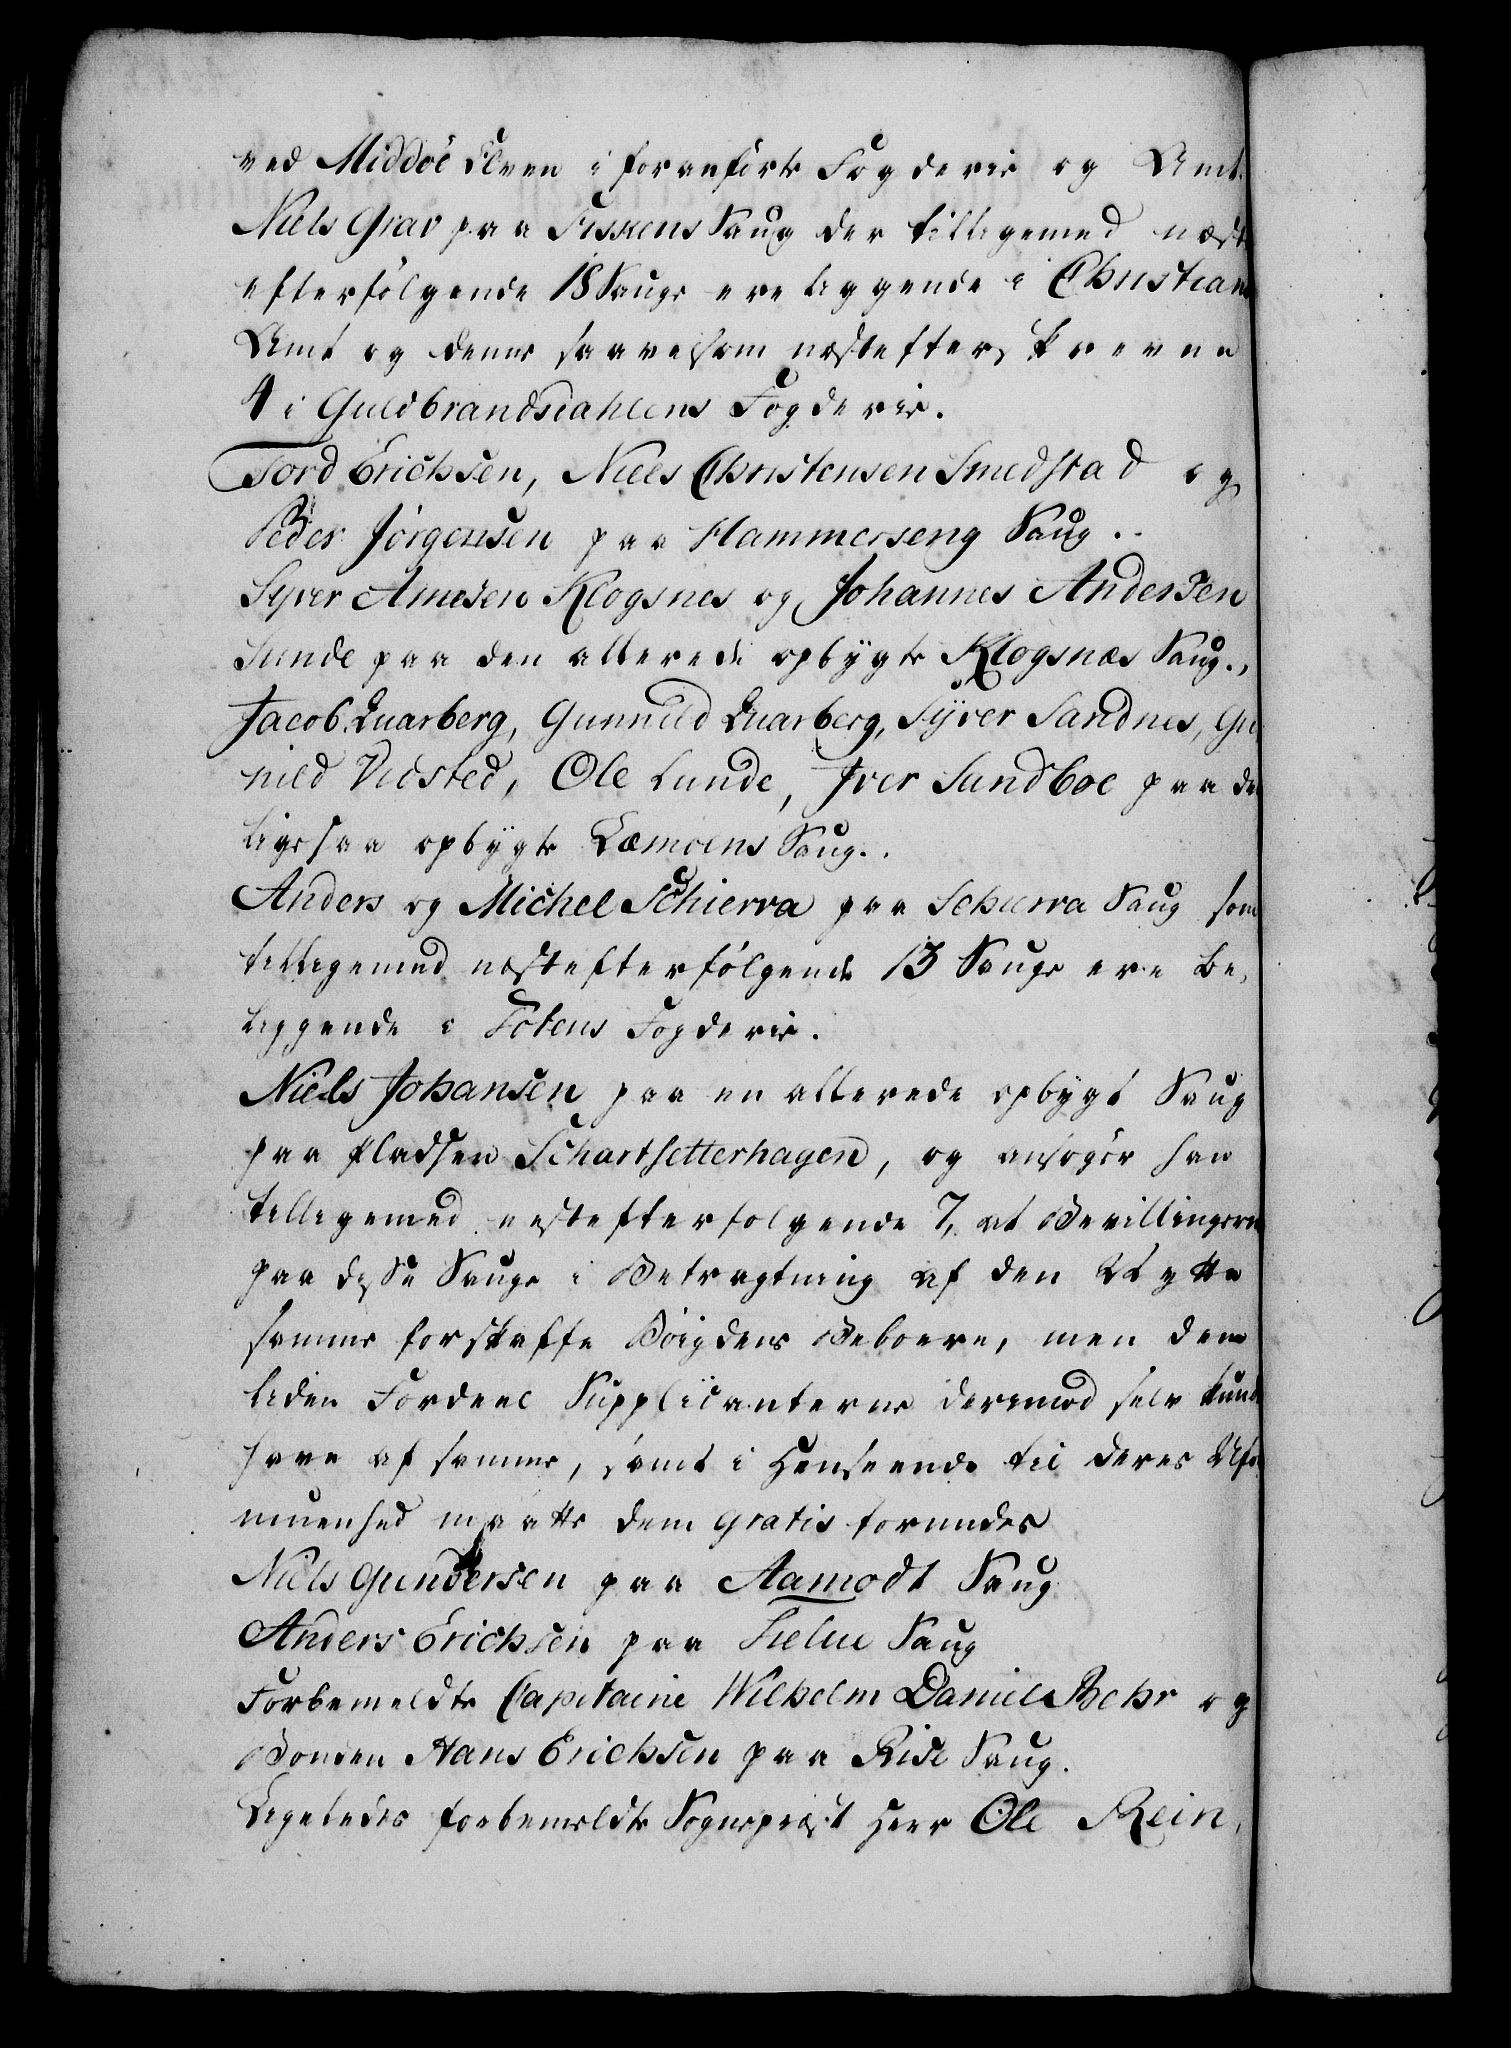 ved Middøe Elven i foranførte Fogderie og Amt.
Niels Grav paa Fiskens Saug der tilligemed næst
efterfølgende 18 Sauge ere liggende i Christians
Amt og denne saavelsom næstefterskrevne
4 i Guldbrandsdahlens Fogderie.
Tord Erichsen, Niels Christensen Smedstad og
Peder Jørgensen paa Hammerseng Saug.
Syver Arnesen Klogsnes og Johannes Andersen
Sunde paa den allerede opbygte Klogsnæs Saug.
Jacob Quarberg, Gunnild Quarberg, Syver Sandnes, Gu
nild Vidsted, Ole Lunde, Iver Sundboe paa de
ligesaa opbygte Læmoens Saug.
Anders og Michel Schierra paa Schierra Saug som
tilligemed næstefterfølgende 13 Sauge ere be-
liggende i Totens Fogderie.
Niels Johansen paa en allerede opbygt Saug
paa Pladsen Schartsetterhagen, og ansøger han
tilligemed næstefterfølgende 7, at Bevillingerne
paa disse Sauge i Betragtning af den Nytte
samme forskaffe Bøigdens Beboere, men den
liden Fordeel Supplicanterne derimod selv kunde
have af samme, samt i Henseende til deres Ufor
muenhed maatte dem gratis forundes
Niels Gundersen paa Aamodt Saug
Anders Erichsen paa Saug
Forbemeldte Capitaine Wilhelm Daniel Behr og
Bonden Hans Erichsen paa Rise Saug.
Ligeledes forbemeldte Sognepræst Herr Ole Rein,